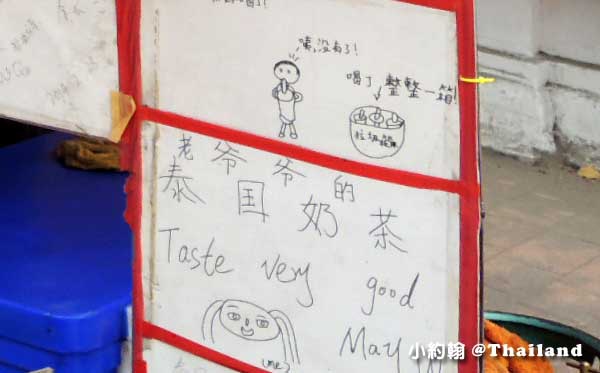 咦,没有了!
喝了整整一箱!
垃圾箱
老爷爷的
泰国奶茶
Taste very good
May
(me)
小約翰 @Thailand